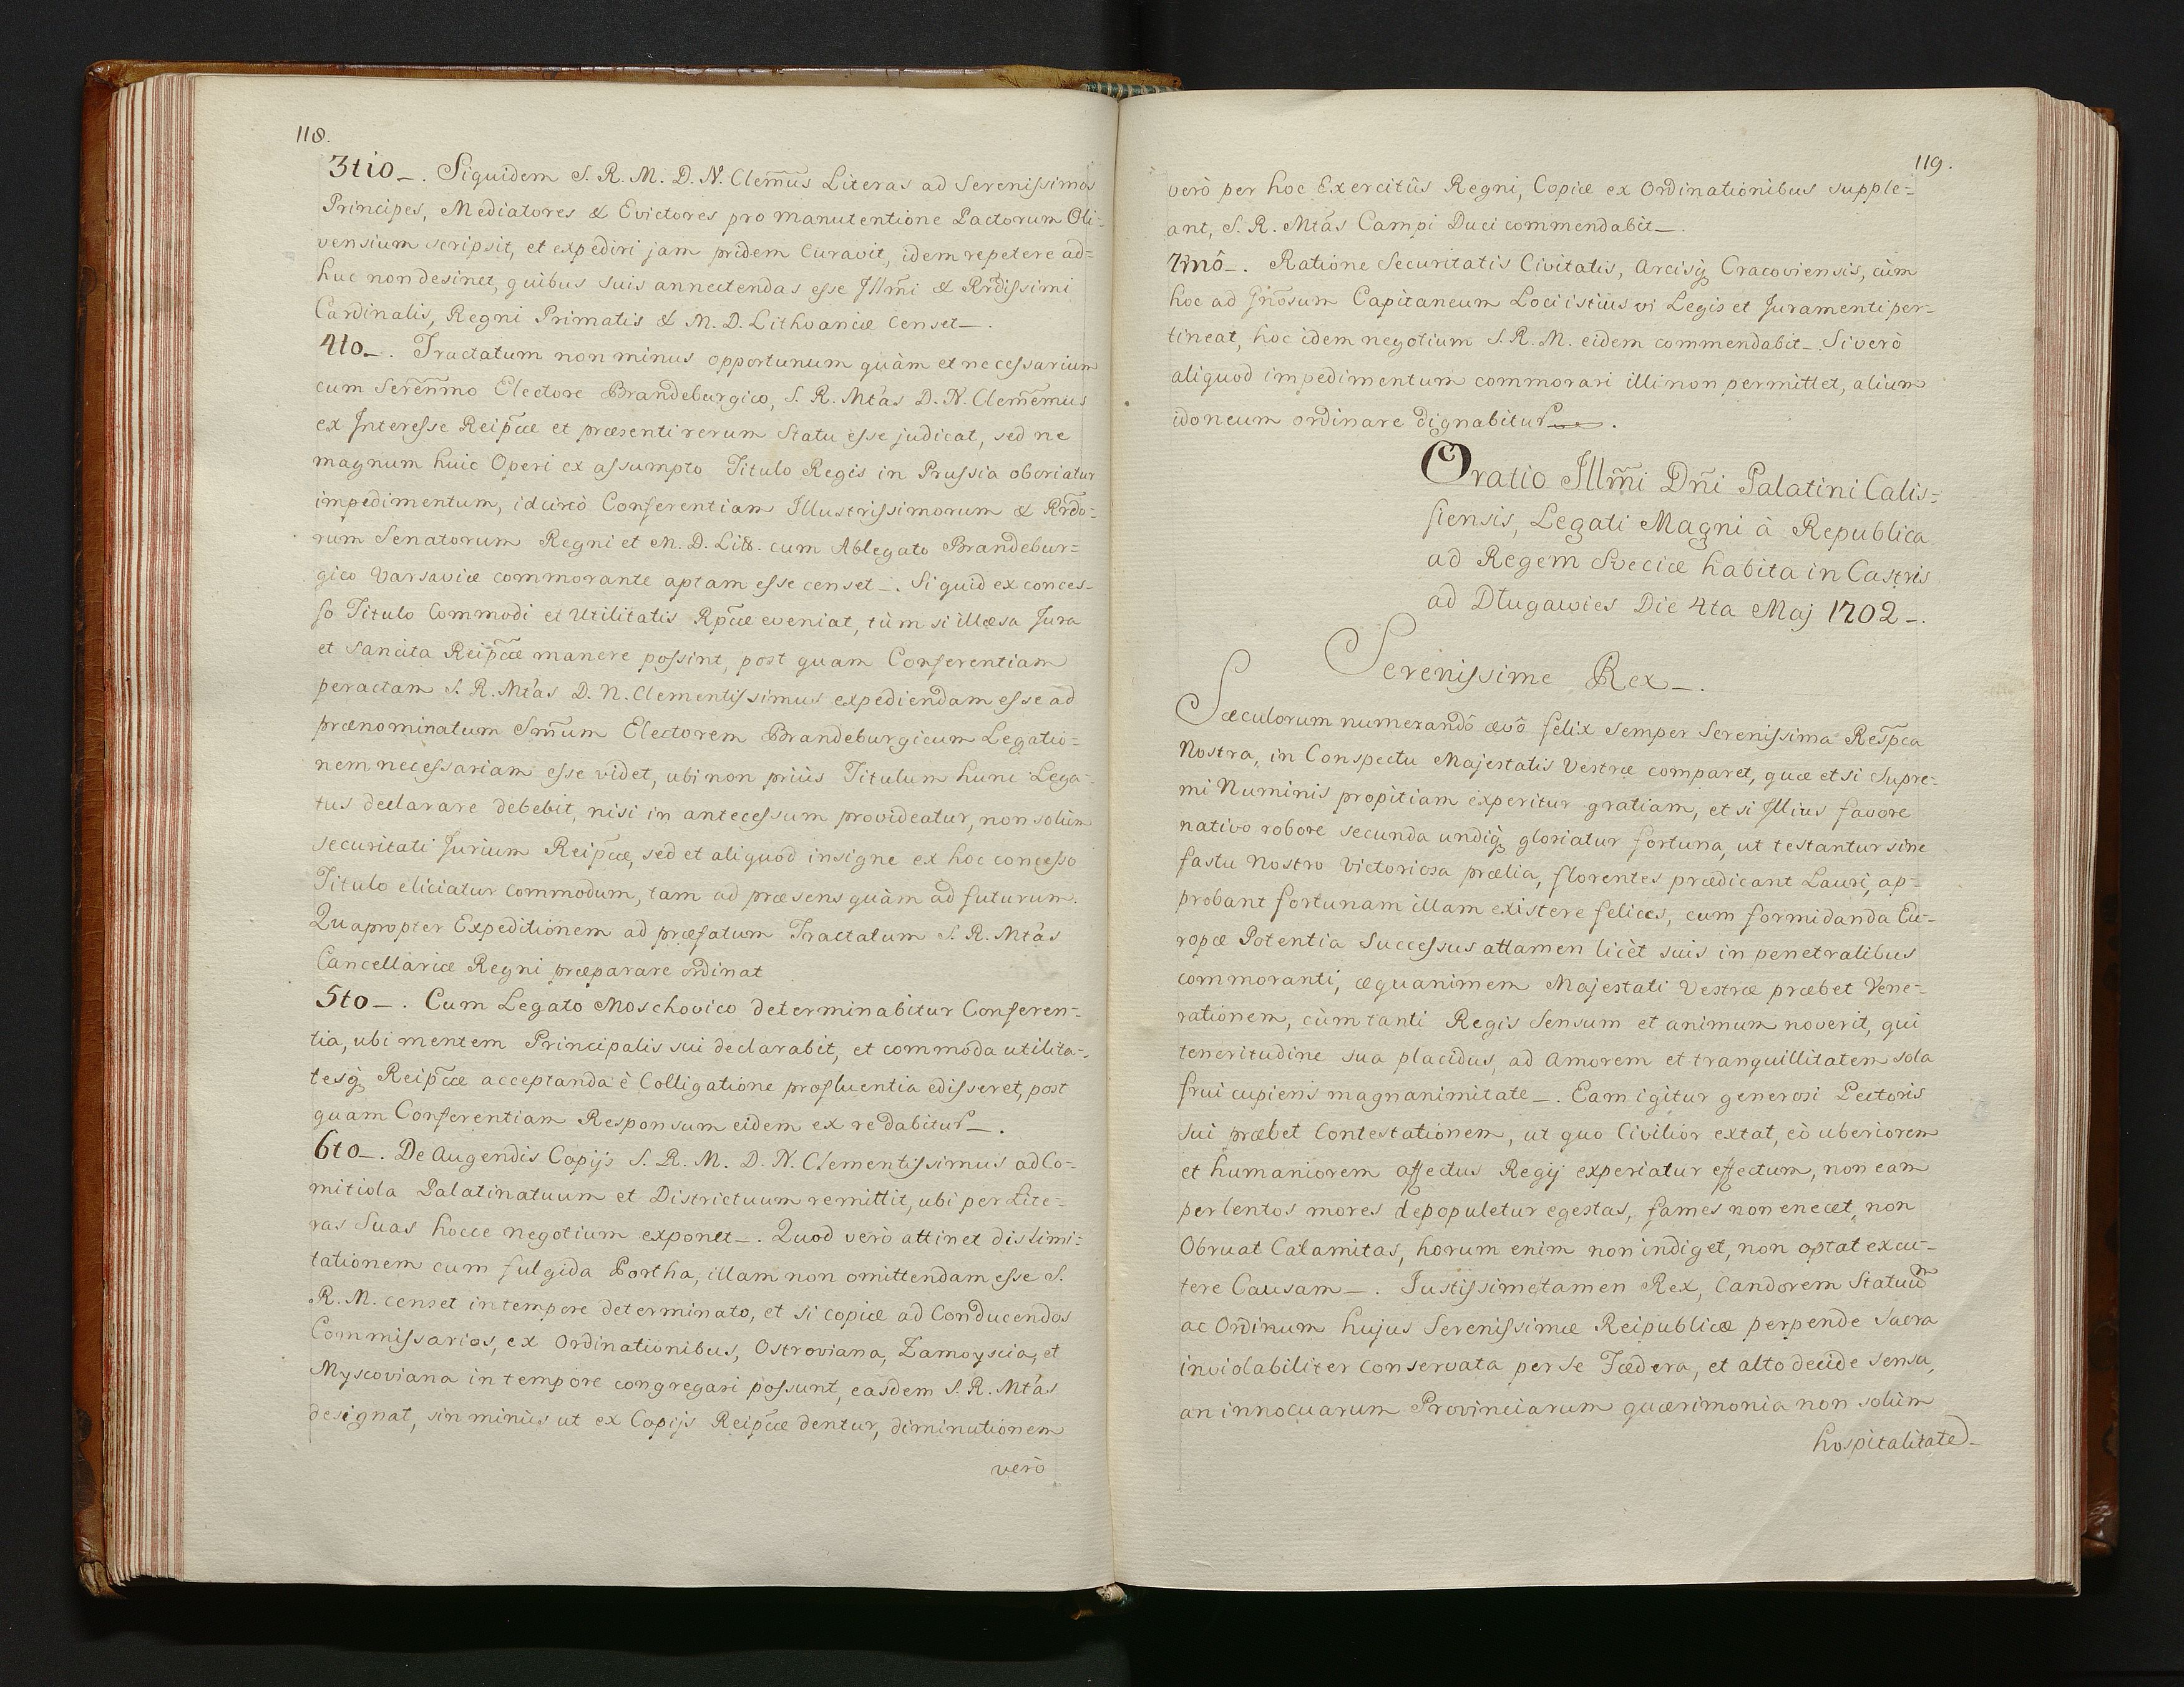 118.
3tio_. Siquidem S. R. M. D. N. Clem̃us Literas ad Serenissimos
Principes, Mediatores & Evictores pro manutentione Pactorum Oli=
vensium scripsit, et expediri jam pridem Curavit, idem repetere ad=
huc non desinet, quibus suis annectendas esse Illm̃i & Rr̃dissimi
Cardinalis, Regni Primatis & M. D. Lithvaniæ Censet_.
4to_. Tractatum non minus opportunum quàm et necessarium
cum Seren̄mo Electore Brandeburgico, S. R. Mtas D. N. Clem̃emus
ex Interesse Reip̃cæ et præsenti rerum Statu esse judicat, sed ne
magnum huic Operi ex assumpto Titulo Regis in Prussia oboriatur
impedimentum, idcircò Conferentiam Illustrissimorum & Rr̃do=
rum Senatorum Regni et M. D. Litt. cum Ablegato Brandebur=
gico Varsaviæ commorante aptam esse censet_. Si quid ex conces=
so Titulo Commodi et Utilitatis Rp̃cæ eveniat, tùm si illæsa Jura
et Sancita Reip̃cæ manere possint, post quam Conferentiam
peractam S. R. Mtas D. N. Clementissimus expediendam esse ad
prænominatum Sm̃um Electorem Brandeburgicum Legatio=
nem necessariam esse videt, ubi non priùs Titulum hunc Lega=
tus declarare debebit, nisi in antecessum provideatur, non solùm
securitati Jurium Reip̃cæ, sed et aliquod insigne ex hoc concesso
Titulo eliciatur commodum, tam ad præsens quàm ad futurum.
Quapropter Expeditionem ad præfatum Tractatum S. R. Mtas
Cancellariæ Regni præparare ordinat
5to_. Cum Legato Moschovico determinabitur Conferen=
tia, ubi mentem Principalis sui declarabit, et commoda utilita=
tesq̃ Reip̃cæ acceptanda è Colligatione profluentia edisseret, post
quam Conferentiam Responsum eidem ex redabitur_.
6to_. De Augendis Copijs S. R. M. D. N. Clementissimus ad Co=
mitiola Palatinatuum et Districtuum remittit, ubi per Lite=
ras Suas hocce negotium exponet_. Quod verò attinet dislimi=
tationem cum fulgida Portha, illam non omittendam esse S.
R. M. censet in tempore determinato, et si copiæ ad Conducendos
Commissarios, ex Ordinationibus, Ostroviana, Zamoyscia, et
Myscoviana in tempore congregari possunt, easdem S. R. Mtas
designat, sin minùs ut ex Copijs Reip̃cæ dentur, diminutionem
verò
119.
verò per hoc Exercitûs Regni, Copiæ ex Ordinationibus supple=
ant, S. R. Mtas Campi Duci commendabit_.
7mô_. Ratione Securitatis Civitatis, Arcisq̃ Cracoviensis, cùm
hoc ad Gñosum Capitaneum Loci istius vi Legis et Juramenti per=
tineat, hoc idem negotium S. R. M. eidem commendabit_. Si verò
aliquod impedimentum commorari illi non permittet, alium
idoneum ordinare dignabitur_.
Oratio Illm̃i Dñi Palatini Calis=
siensis, Legati Magni à Republica
ad Regem Sveciæ habita in Castris
ad Dlugawies Die 4ta Maj 1702_.
Serenissime Rex_.
Sæculorum numerandô ævô felix semper Serenissima Resp̃ca
Nostra, in Conspectu Majestatis Vestræ comparet, quæ etsi Supre=
mi Numinis propitiam experitur gratiam, et si Illius favore
nativo robore secunda undiq̃ gloriatur fortuna, ut testantur sine
fastu Nostro victoriosa prælia, florentes prædicant Lauri, ap=
probant fortunam illam existere felices, cum formidanda Eu=
ropæ Potentia Successus attamen licèt suis in penetralibus
commoranti, æquanimem Majestati Vestræ præbet Vene=
rationem, cùm tanti Regis Sensum et animum noverit, qui
teneritudine sua placidus, ad Amorem et tranquillitatem sola
frui cupiens magnanimitate_. Eam igitur generosi Pectoris
sui præbet Contestationem, ut quo Civilior extat, eò uberiorem
et humaniorem affectus Regij experiatur effectum, non eam
per lentos mores depopuletur egestas, fames non enecet, non
Obruat Calamitas, horum enim non indiget, non optat excu=
tere Causam_. Justissime tamen Rex, Candorem Statuũ
ac Ordinum hujus Serenissimæ Reipublicæ perpende Sacra
inviolabiliter conservata per se Fædera, et alto decide sensu,
an innocuarum Provinciarum quærimonia non solùm
hospitalitate_